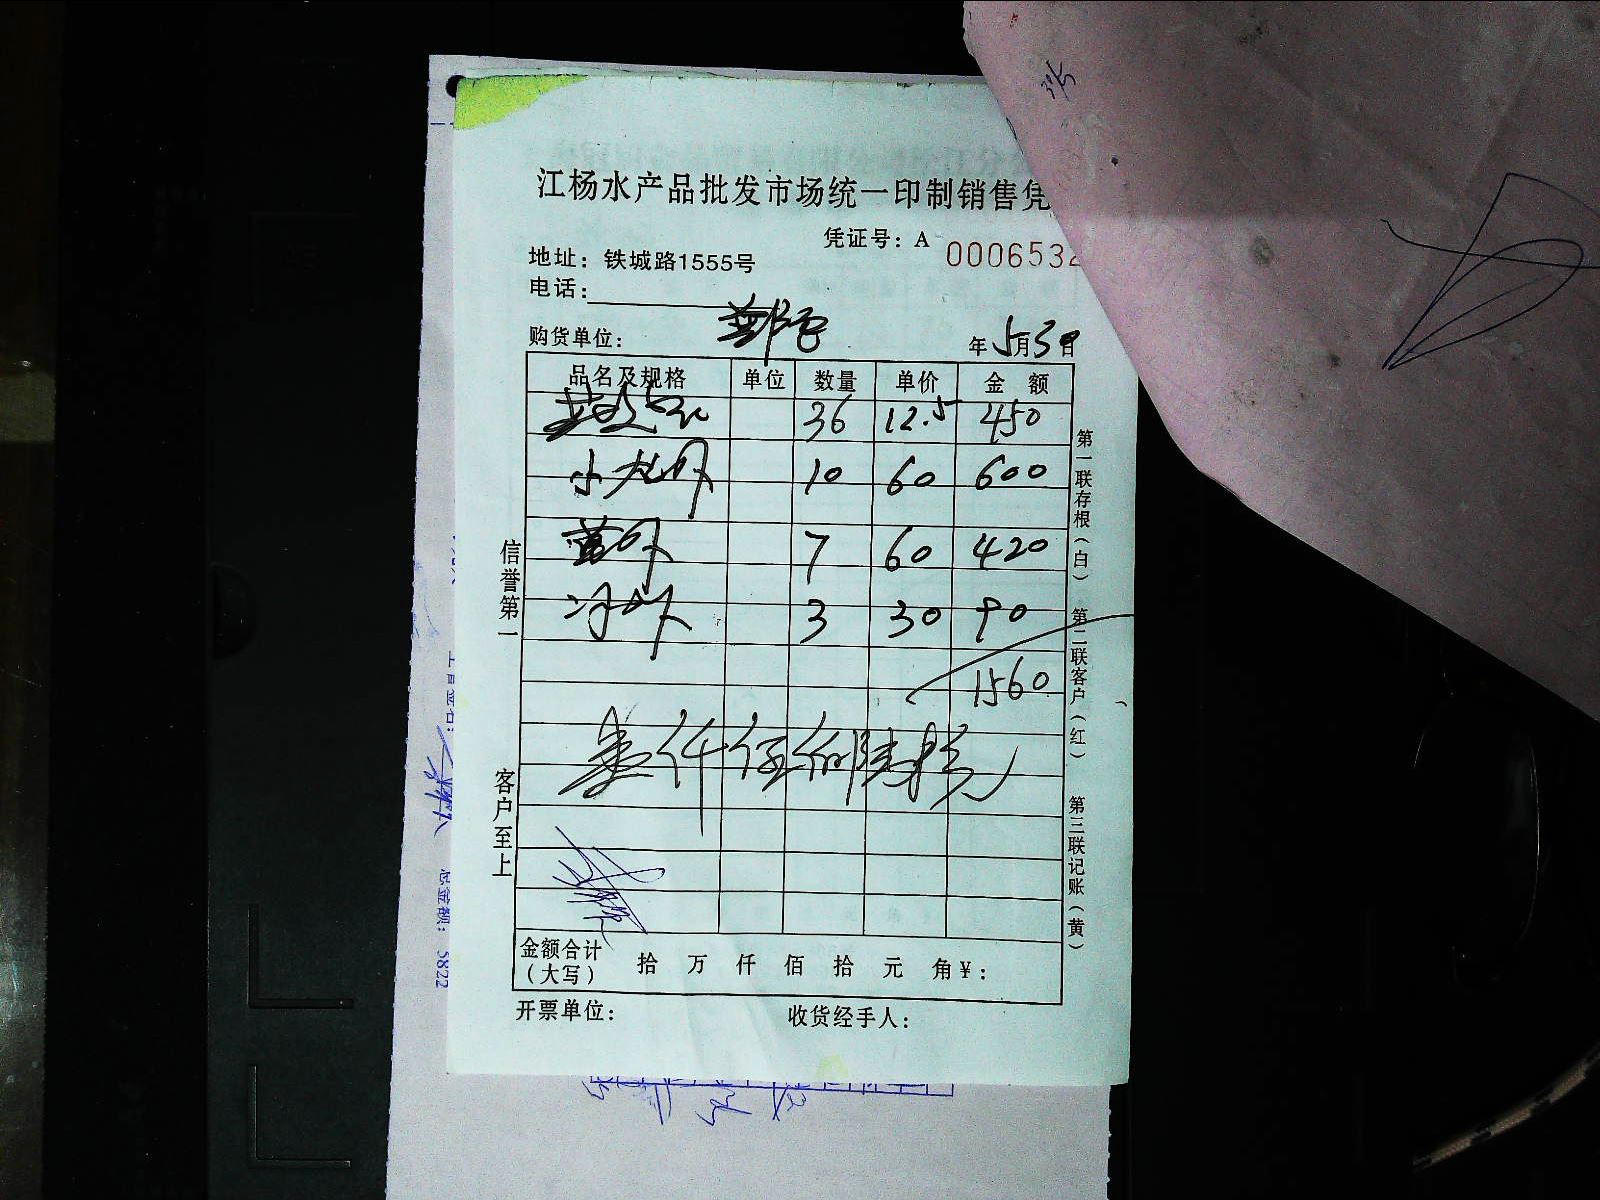 江杨水产品批发市场统一印制销售凭
凭证号：A 0006532
地址：铁城路1555号
电话：
购货单位：
年 5月30日
品名及规格 单位 数量 单价 金 额
36 12.5 450
小龙虾 10 60 600
7 60 420
3 30 90
1560
壹仟伍佰陆拾元
金额合计（大写） 拾 万 仟 佰 拾 元 角 ￥：
开票单位： 收货经手人：
信誉第一
客户至上
第一联存根（白）
第二联客户（红）
第三联记账（黄）
总金额：5822